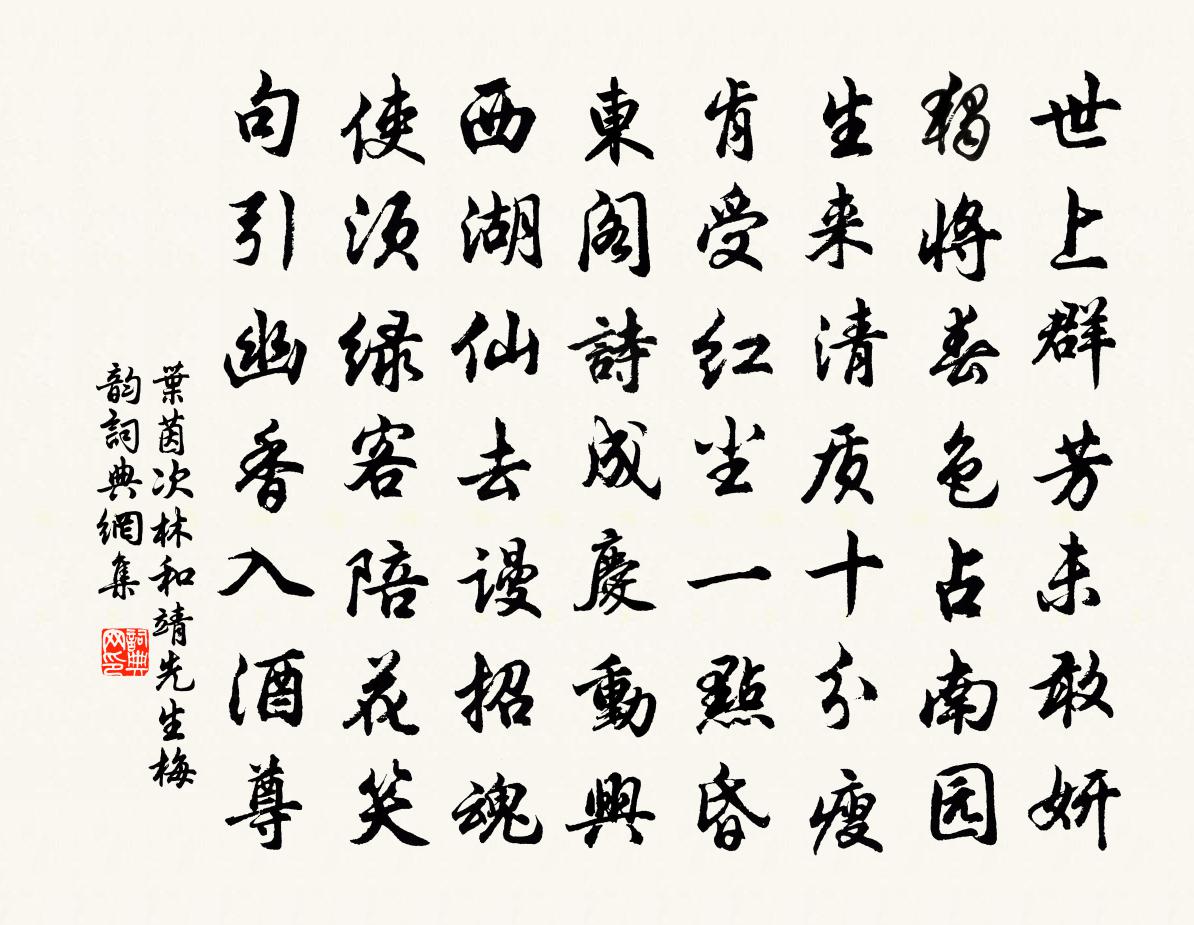 世上群芳未敢妍
独將春色占南园
生来清质十分瘦
肯受红尘一點昏
東阁詩成慶動興
西湖仙去谩招魂
使须绿客陪花笑
句引幽香入酒尊
葉茵次林和靖先生梅
韵詞典網集
詞典网印